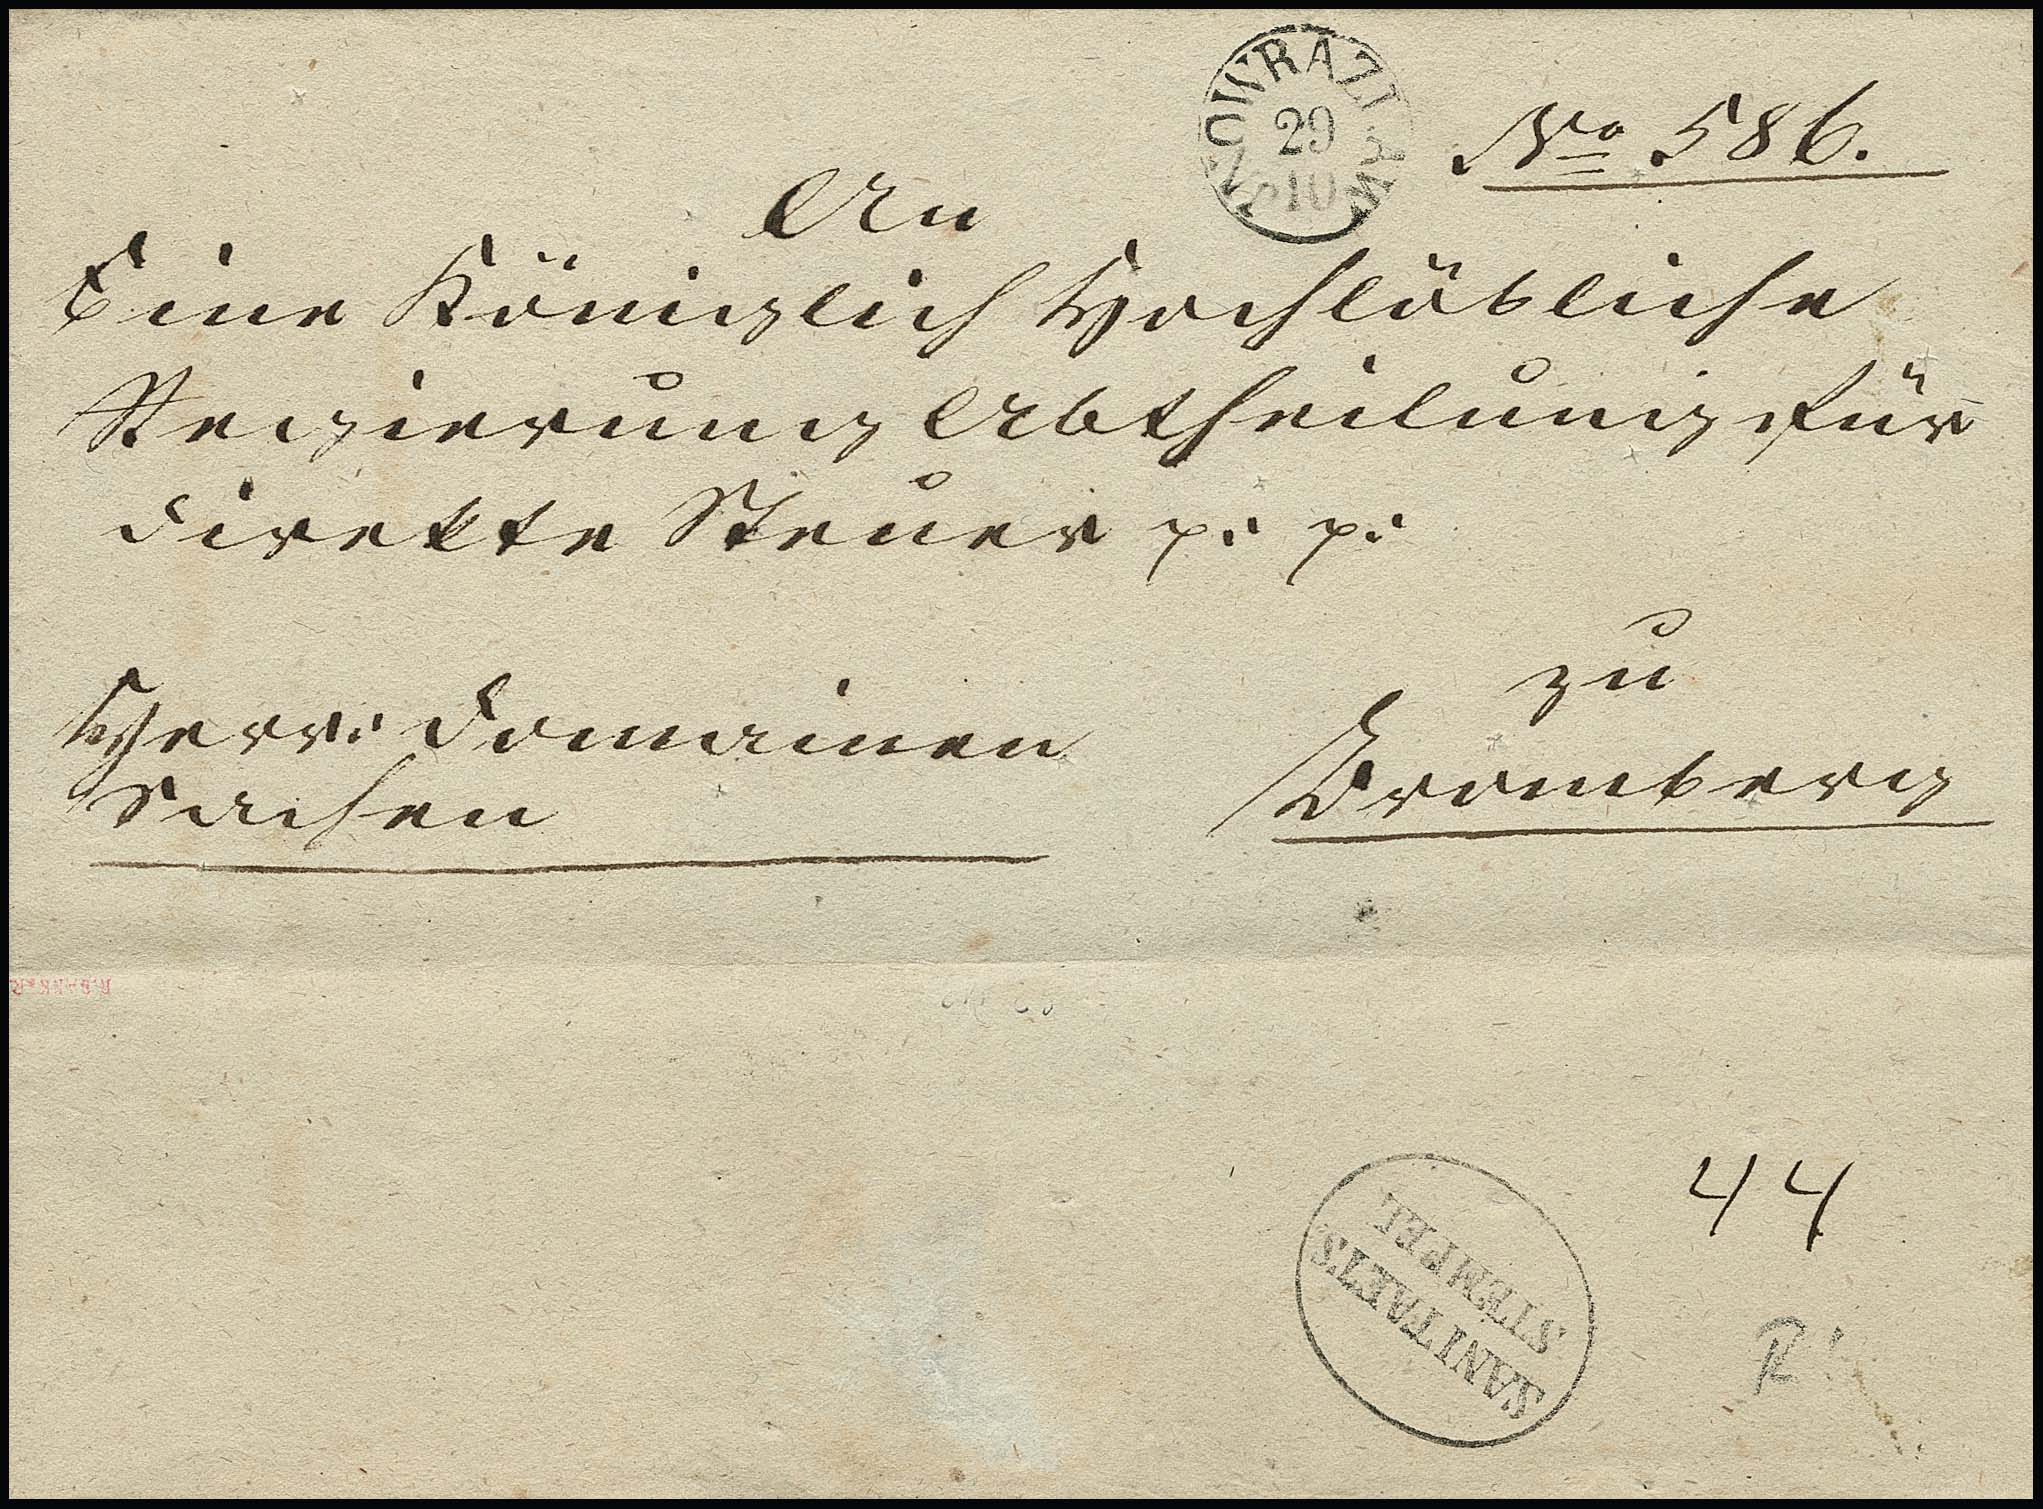 INOWRAZLAW
29
10
No 586.
An
Eine Königlich Hochlöbliche
Regierung Abtheilung für
direkte Steuer p. p.
zu
Bromberg
Herr. Domainen
Sachen
44
SANITAETS
STEMPEL